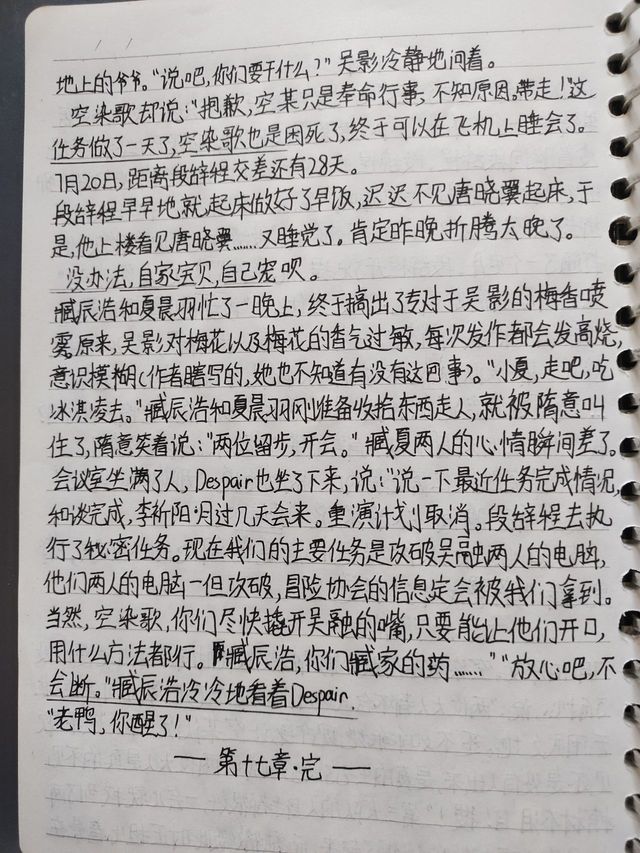 地上的爷爷。“说吧,你们要干什么?”吴影冷静地问着。
空染歌却说:“抱歉,空某只是奉命行事,不知原因。带走!”这
任务做了一天了,空染歌也是困死了,终于可以在飞机上睡会了。
7月20日,距离段辞程交差还有28天。
段辞程早早地就,起床做好了早饭,迟迟不见唐晓翼起床,于
是,他上楼看见唐晓翼……又睡觉了。肯定昨晚折腾太晚了。
没办法,自家宝贝,自己宠呗。
臧辰浩和夏晨羽忙了一晚上,终于搞出了专对于吴影的梅香喷
雾,原来,吴影对梅花以及梅花的香气过敏,每次发作都会发高烧,
意识模糊(作者瞎写的,她也不知道有没有这回事)。“小夏,走吧,吃
冰淇凌去。”臧辰浩和夏晨羽刚准备收拾东西走人,就被隋意叫
住了,隋意笑着说:“两位留步,开会。”臧夏两人的心情瞬间差了。
会议室坐满了人,Despair也坐了下来,说:“说一下最近任务完成情况,
和谈完成,李祈阳·月过几天会来。重演计划取消。段辞程去执
行了秘密任务。现在我们的主要任务是攻破吴融两人的电脑,
他们两人的电脑一但攻破,冒险协会的信息定会被我们拿到。
当然,空染歌,你们尽快撬开吴融的嘴,只要能让他们开口,
用什么方法都行。臧辰浩,你们臧家的药……”“放心吧,不
会断。”臧辰浩冷冷地看着Despair.
“老鸭,你醒了!”
—— 第十七章·完 ——